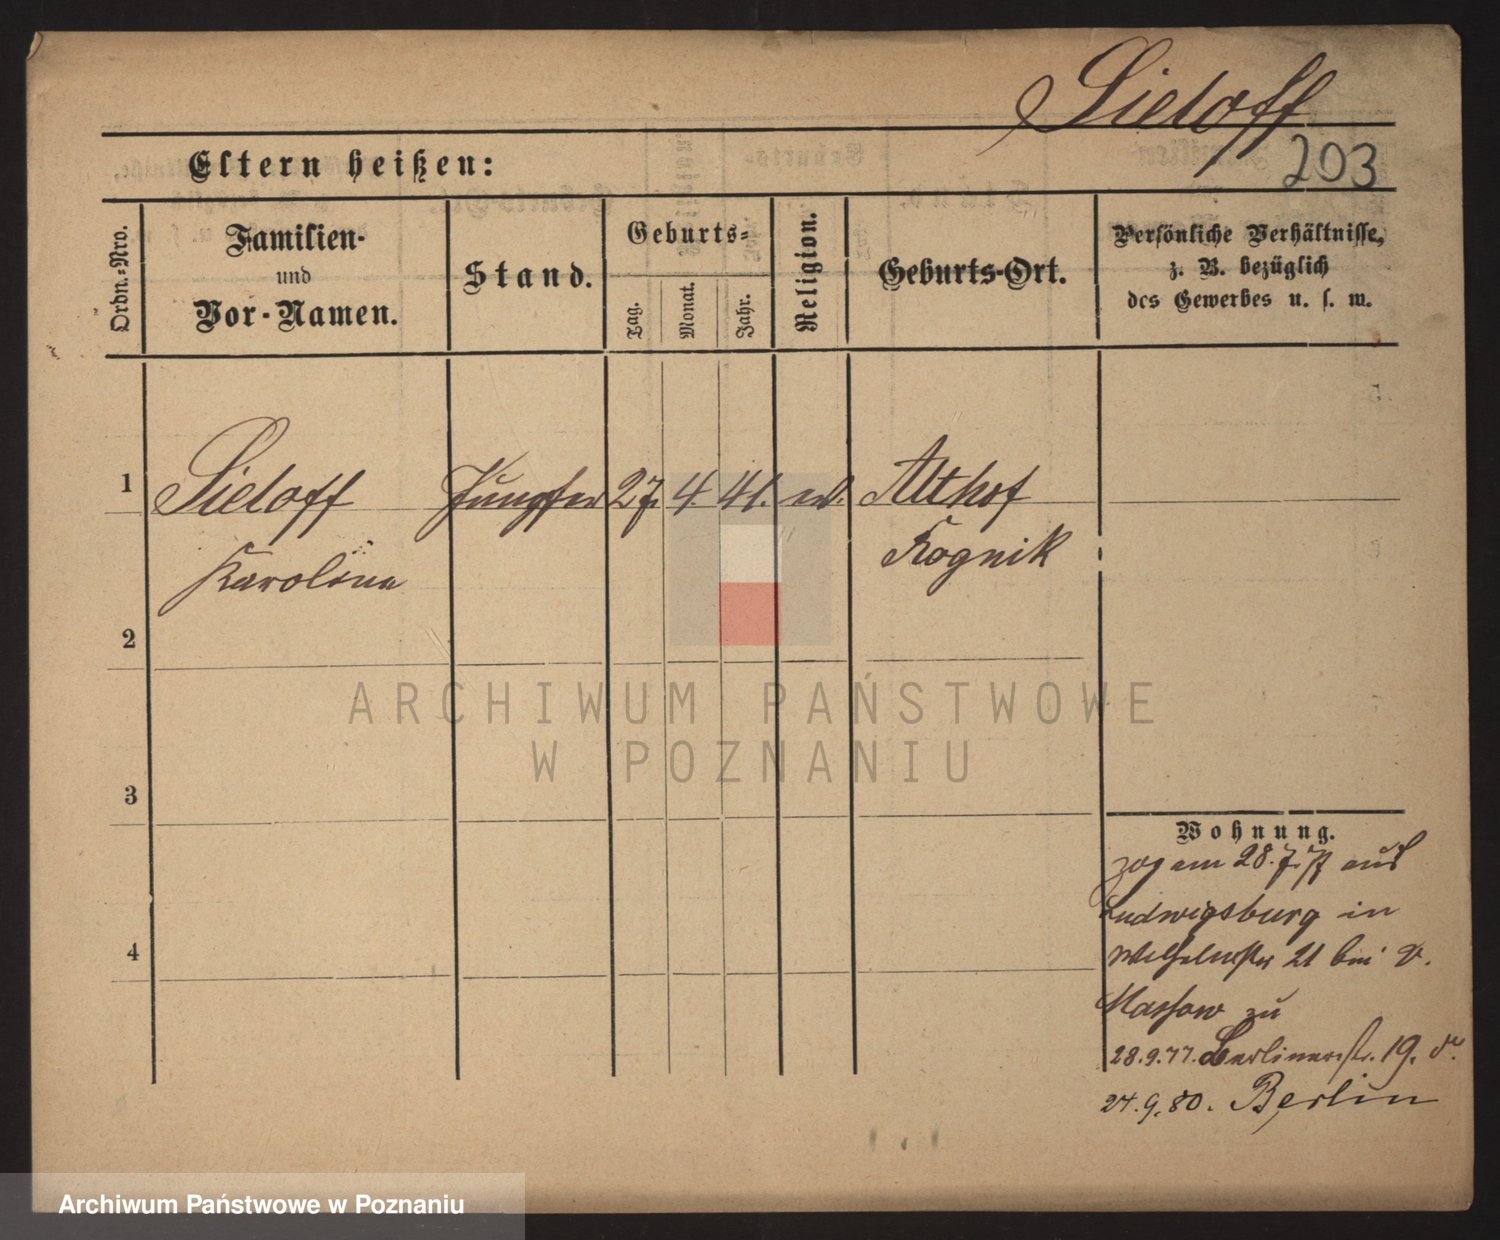 Sieloff
203
Eltern heißen:
Ordn.-Nro.
Familien-
und
Vor-Namen.
Stand.
Geburts-
Tag.
Monat.
Jahr.
Religion.
Geburts-Ort.
Persönliche Verhältnisse,
z. B. bezüglich
des Gewerbes u. s. w.
1 Sieloff Jungfer 27. 4. 41. ev. Althof
Karoline Rognik
2
ARCHIWUM PAŃSTWOWE
W POZNANIU
3
Wohnung.
zog am 28. 7. aus
Ludwigsburg in
Wilhelmstr 21 bei v.
Massow zu
28.9.77. Berlinerstr. 19.
4
24.9.80. Berlin
Archiwum Państwowe w Poznaniu